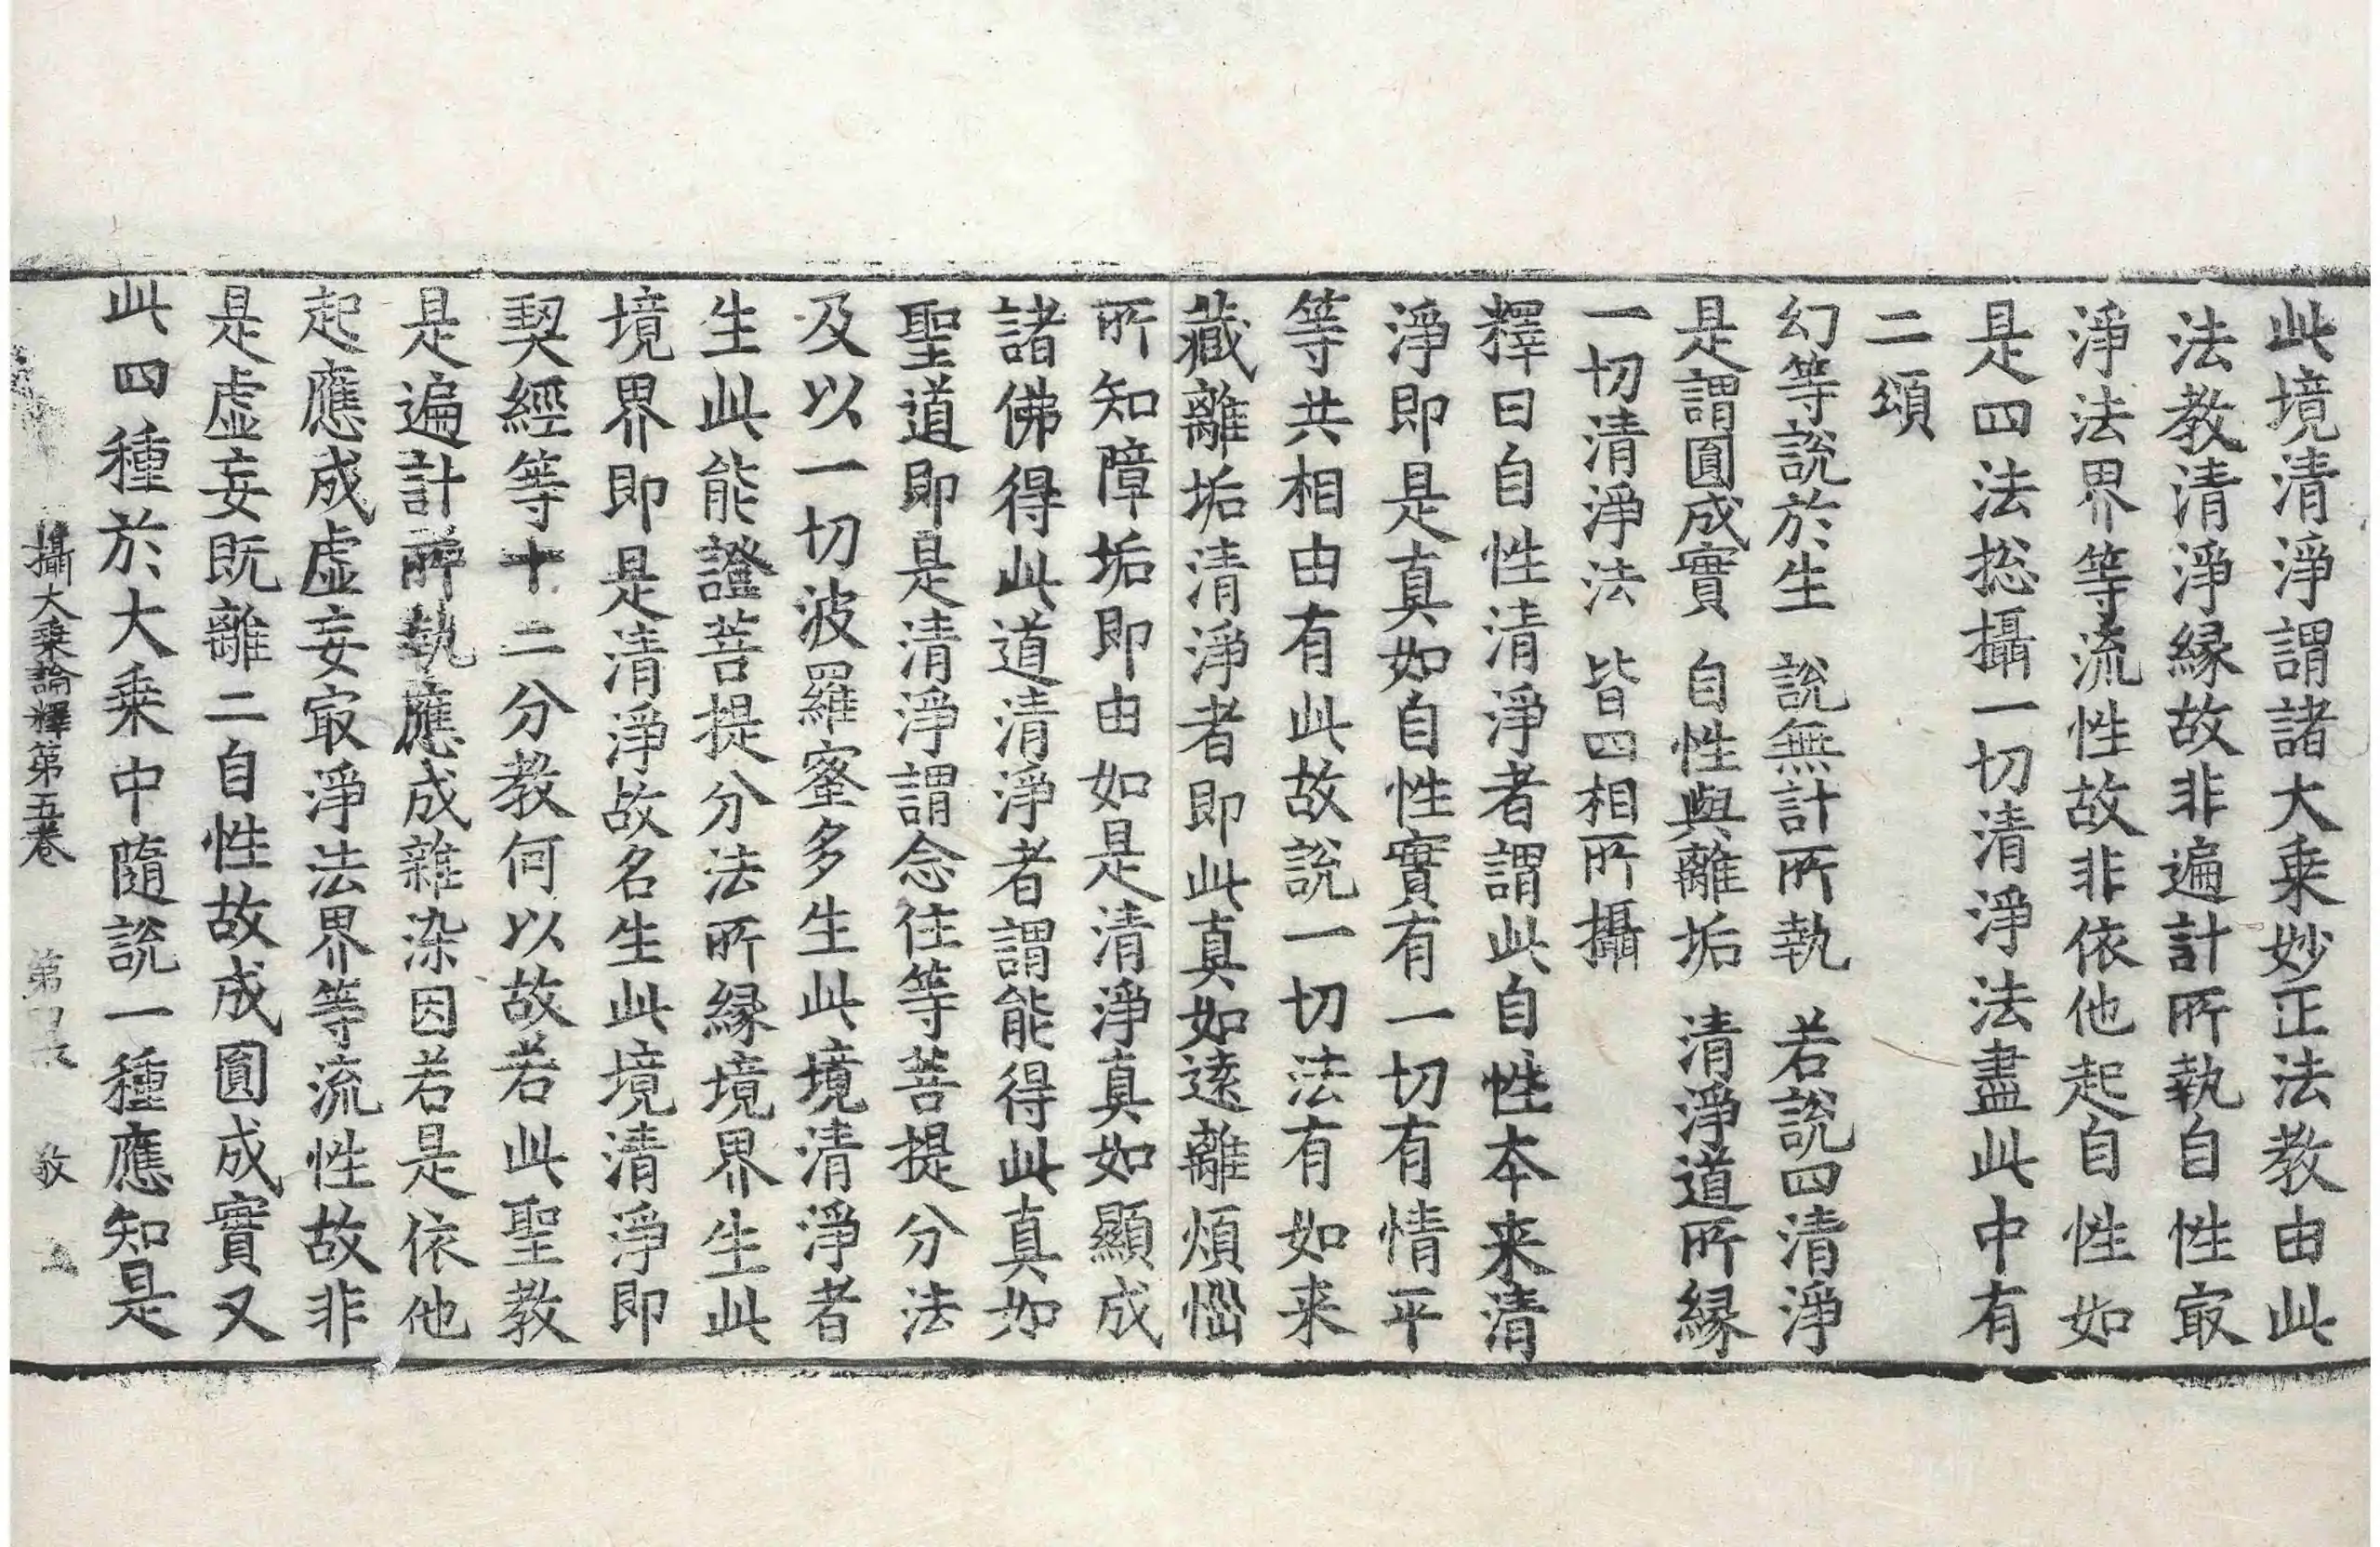 此境清淨謂諸大乗妙正法教由此
法教清淨縁故非遍計所執自性㝡
淨法界等流性故非依他起自性如
是四法捴攝一切清淨法盡此中有
二頌
幻等說於生　說無計所執　若說四清淨
是謂圓成實　自性與離垢　清淨道所縁
一切清淨法　皆四相所攝
釋曰自性清淨者謂此自性本来清
淨即是真如自性實有一切有情平
等共相由有此故說一切法有如来
藏離垢清淨者即此真如逺離煩惱
所知障垢即由如是清淨真如顯成
諸佛得此道清淨者謂能得此真如
聖道即是清淨謂念住等菩提分法
及以一切波羅蜜多生此境清淨者
生此能證菩提分法所縁境界生此
境界即是清淨故名生此境清淨即
契經等十二分教何以故若此聖教
是遍計所執應成雜染因若是依他
起應成虛妄㝡淨法界等流性故非
是虛妄既離二自性故成圓成實又
此四種於大乗中隨說一種應知是
攝大乗論釋第五卷　第　敬